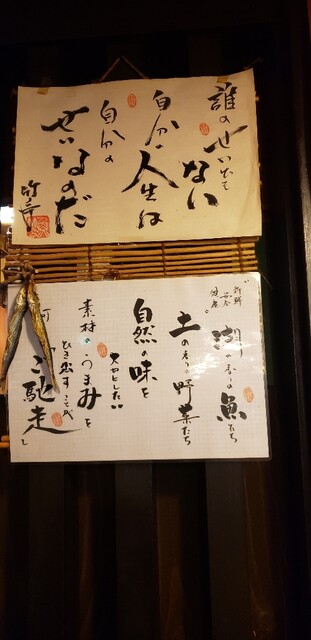 誰のせいでも
ない
自分の人生は
自分の
せいなのだ
"新鮮
安全
健康"
潮の香りの魚たち
土の香りの野菜たち
自然の味を
大切にしたい
素材のうまみを
ひき出すことが
ご馳走